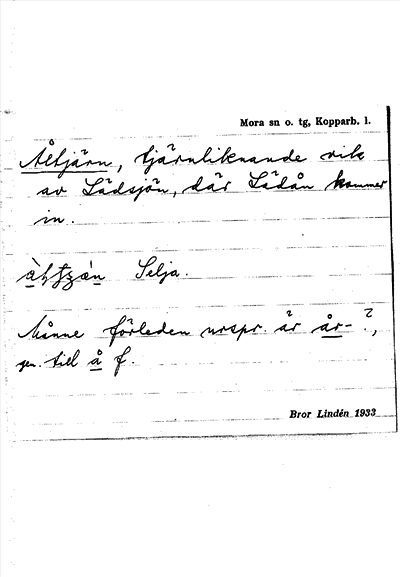 Mora sn o. tg, Kopparb. l.
Åltjärn, tjärnliknande vik
av Lädsjön, där Lädån kommer
in.
Selja.
Månne förleden urspr. är år- ?,
gen. till å f.
Bror Lindén 1933